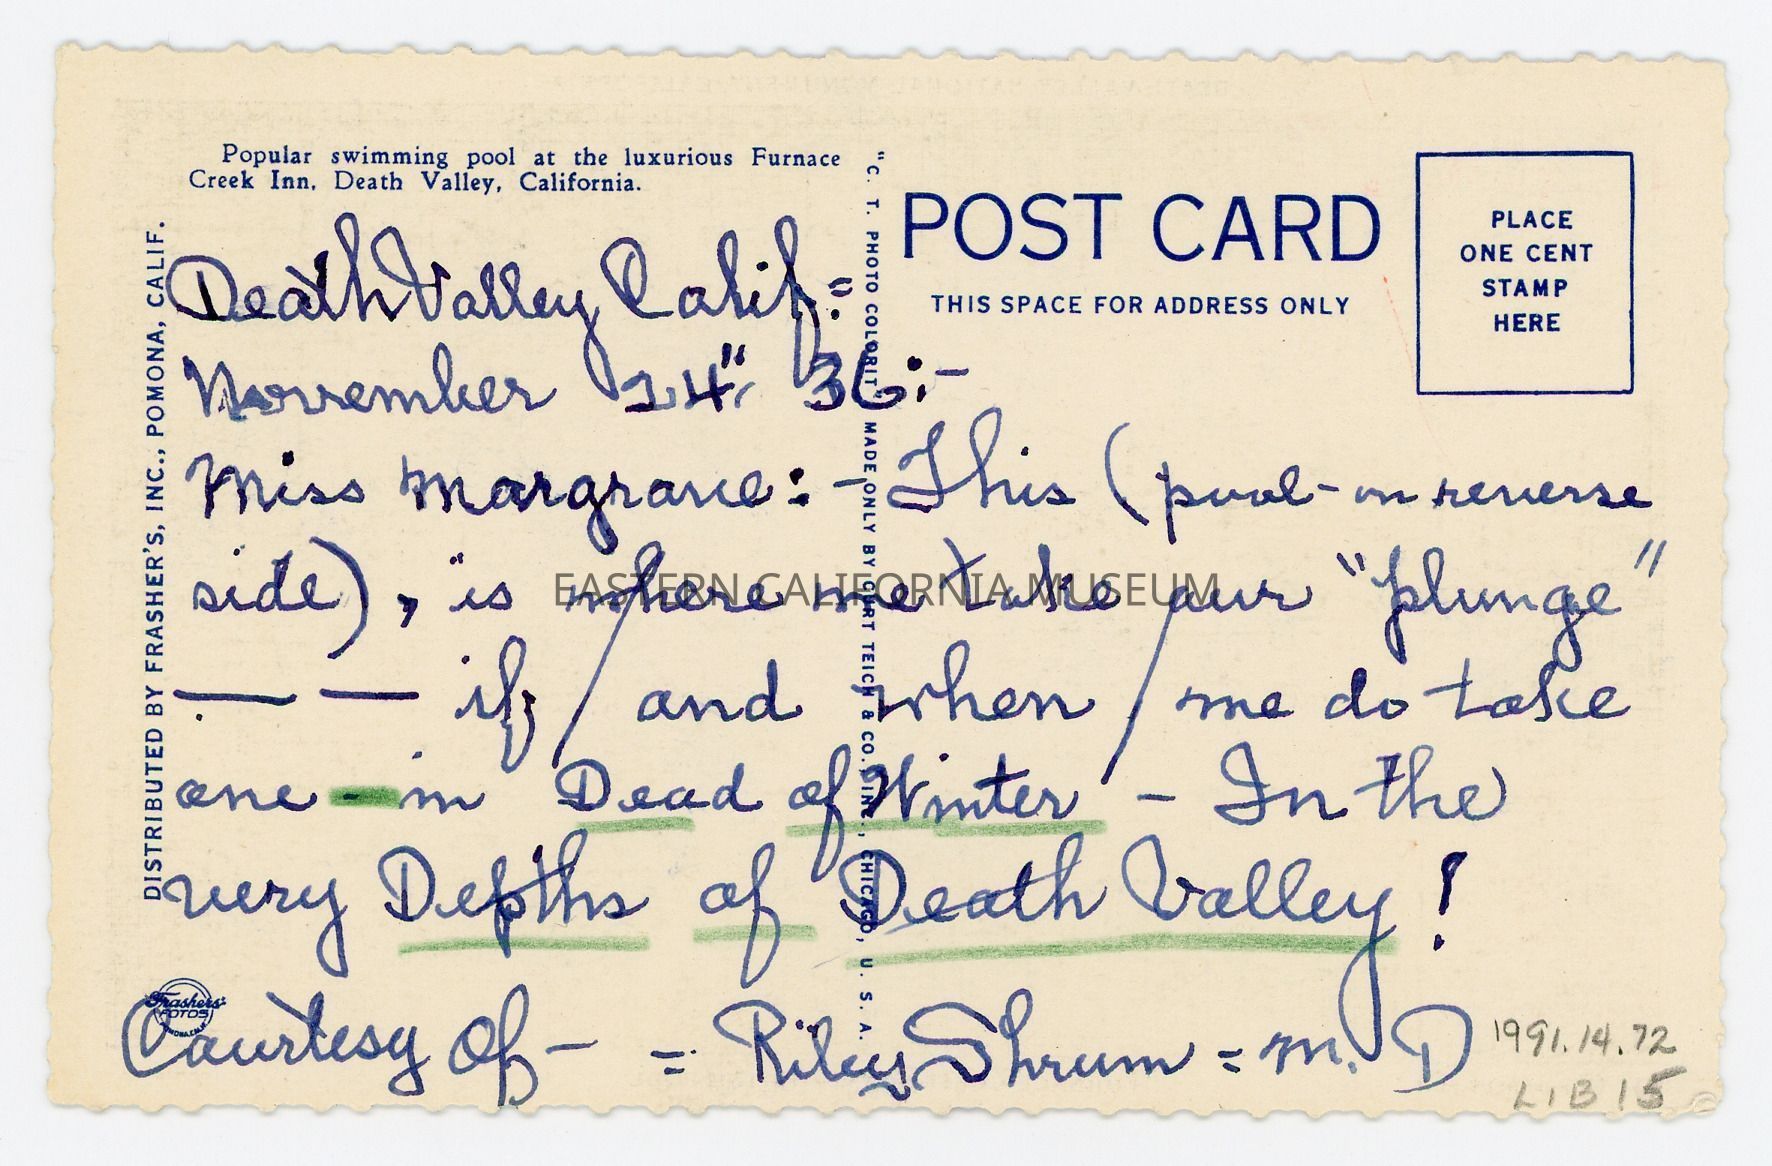 Popular swimming pool at the luxurious Furnace
Creek Inn, Death Valley, California.
DISTRIBUTED BY FRASHER'S, INC., POMONA, CALIF.
"C. T. PHOTO COLORIT" MADE ONLY BY CURT TEICH & CO., INC., CHICAGO, U. S. A.
POST CARD
THIS SPACE FOR ADDRESS ONLY
PLACE
ONE CENT
STAMP
HERE
Death Valley Calif =
November 14" 36:-
Miss Margrave: - This (pool - on reverse
side), is where we take our "plunge"
— — if / and when / we do take
one - in Dead of Winter - In the
very Depths of Death Valley!
Courtesy Of - = Riley Shrum = M. D
Frashers'
FOTOS
POMONA, CALIF.
1991.14.72
LIB 15
EASTERN CALIFORNIA MUSEUM